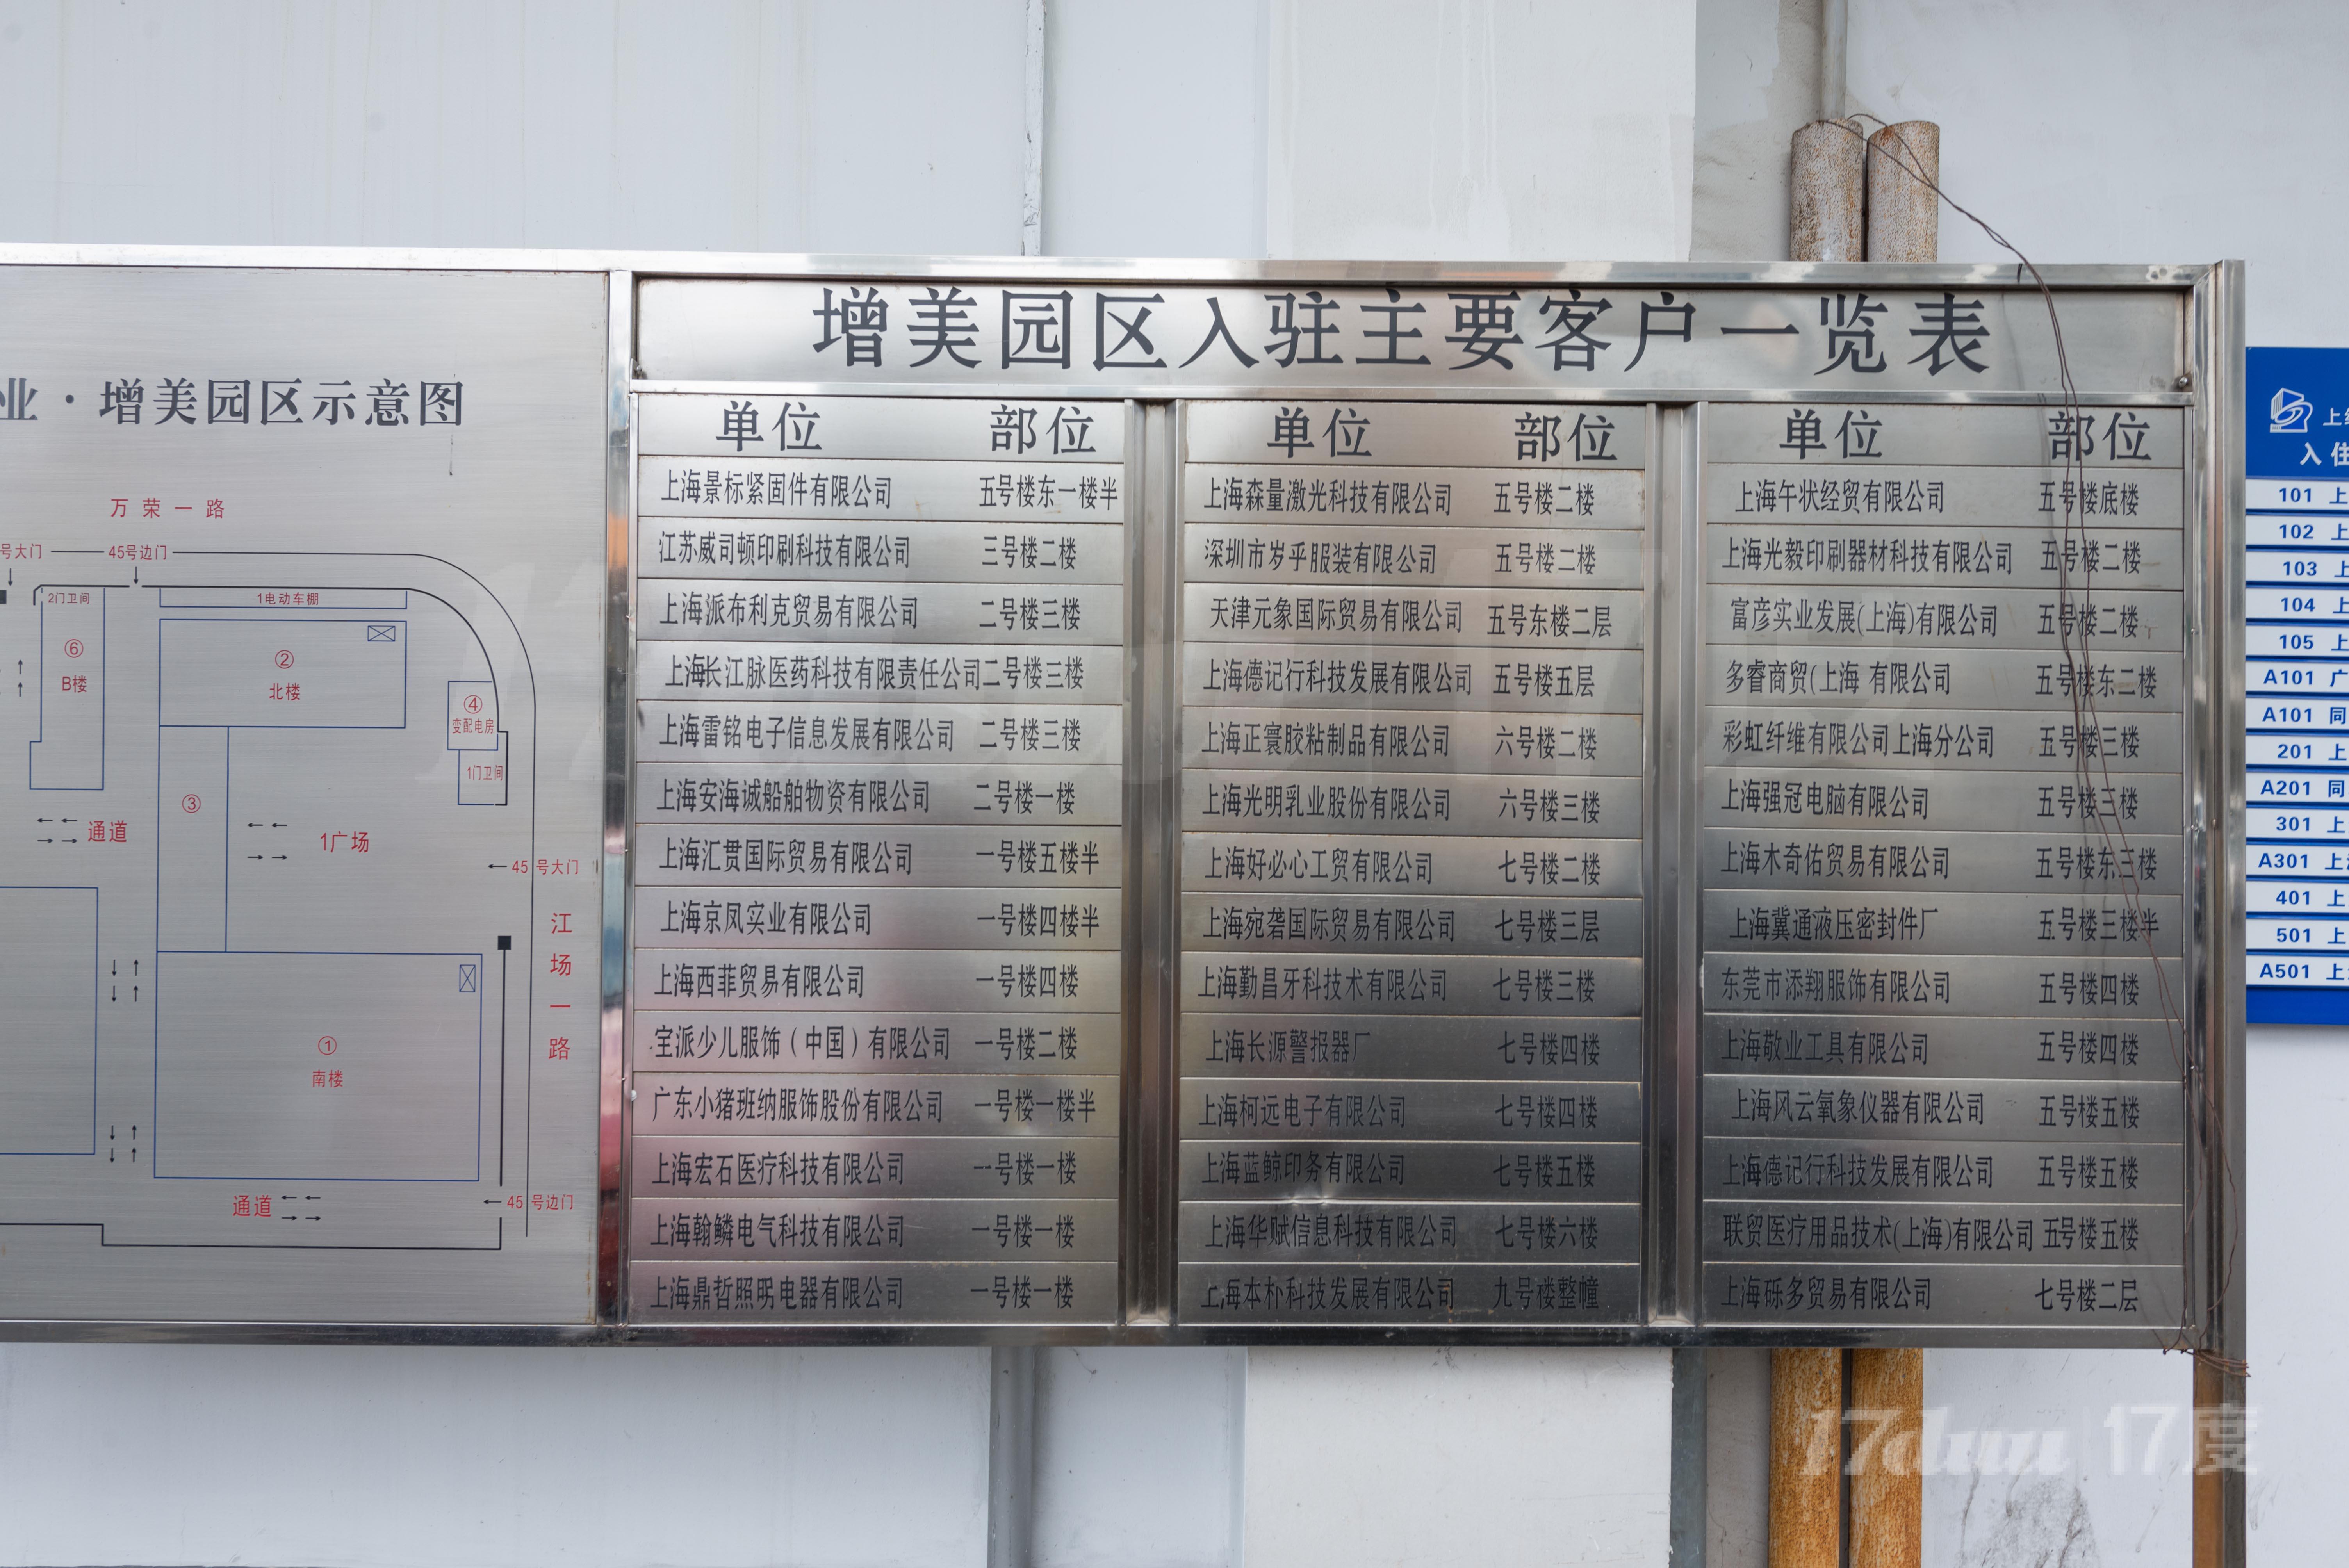 业·增美园区示意图
万荣一路
号大门
45号边门
2门卫间
1电动车棚
⑥
B楼
②
北楼
④
变配电房
1门卫间
③
通道
1广场
45号大门
江场一路
①
南楼
通道
45号边门
增美园区入驻主要客户一览表
单位 部位
上海景标紧固件有限公司 五号楼东一楼半
江苏威司顿印刷科技有限公司 三号楼二楼
上海派布利克贸易有限公司 二号楼三楼
上海长江脉医药科技有限责任公司 二号楼三楼
上海雷铭电子信息发展有限公司 二号楼三楼
上海安海诚船舶物资有限公司 二号楼一楼
上海汇贯国际贸易有限公司 一号楼五楼半
上海京凤实业有限公司 一号楼四楼半
上海西菲贸易有限公司 一号楼四楼
宝派少儿服饰（中国）有限公司 一号楼二楼
广东小猪班纳服饰股份有限公司 一号楼一楼半
上海宏石医疗科技有限公司 一号楼一楼
上海翰鳞电气科技有限公司 一号楼一楼
上海鼎哲照明电器有限公司 一号楼一楼
单位 部位
上海森量激光科技有限公司 五号楼二楼
深圳市岁乎服装有限公司 五号楼二楼
天津元象国际贸易有限公司 五号东楼二层
上海德记行科技发展有限公司 五号楼五层
上海正寰胶粘制品有限公司 六号楼二楼
上海光明乳业股份有限公司 六号楼三楼
上海好必心工贸有限公司 七号楼二楼
上海宛砻国际贸易有限公司 七号楼三层
上海勤昌牙科技术有限公司 七号楼三楼
上海长源警报器厂 七号楼四楼
上海柯远电子有限公司 七号楼四楼
上海蓝鲸印务有限公司 七号楼五楼
上海华赋信息科技有限公司 七号楼六楼
上海本朴科技发展有限公司 九号楼整幢
单位 部位
上海午状经贸有限公司 五号楼底楼
上海光毅印刷器材科技有限公司 五号楼二楼
富彦实业发展(上海)有限公司 五号楼二楼
多睿商贸(上海 有限公司 五号楼东二楼
彩虹纤维有限公司上海分公司 五号楼三楼
上海强冠电脑有限公司 五号楼三楼
上海木奇佑贸易有限公司 五号楼东三楼
上海冀通液压密封件厂 五号楼三楼半
东莞市添翔服饰有限公司 五号楼四楼
上海敬业工具有限公司 五号楼四楼
上海风云氧象仪器有限公司 五号楼五楼
上海德记行科技发展有限公司 五号楼五楼
联贸医疗用品技术(上海)有限公司 五号楼五楼
上海砾多贸易有限公司 七号楼二层
上
入住
101 上
102 上
103 上
104 上
105 上
A101 广
A101 同
201 上
A201 同
301 上
A301 上
401 上
501 上
A501 上
17duu 17度